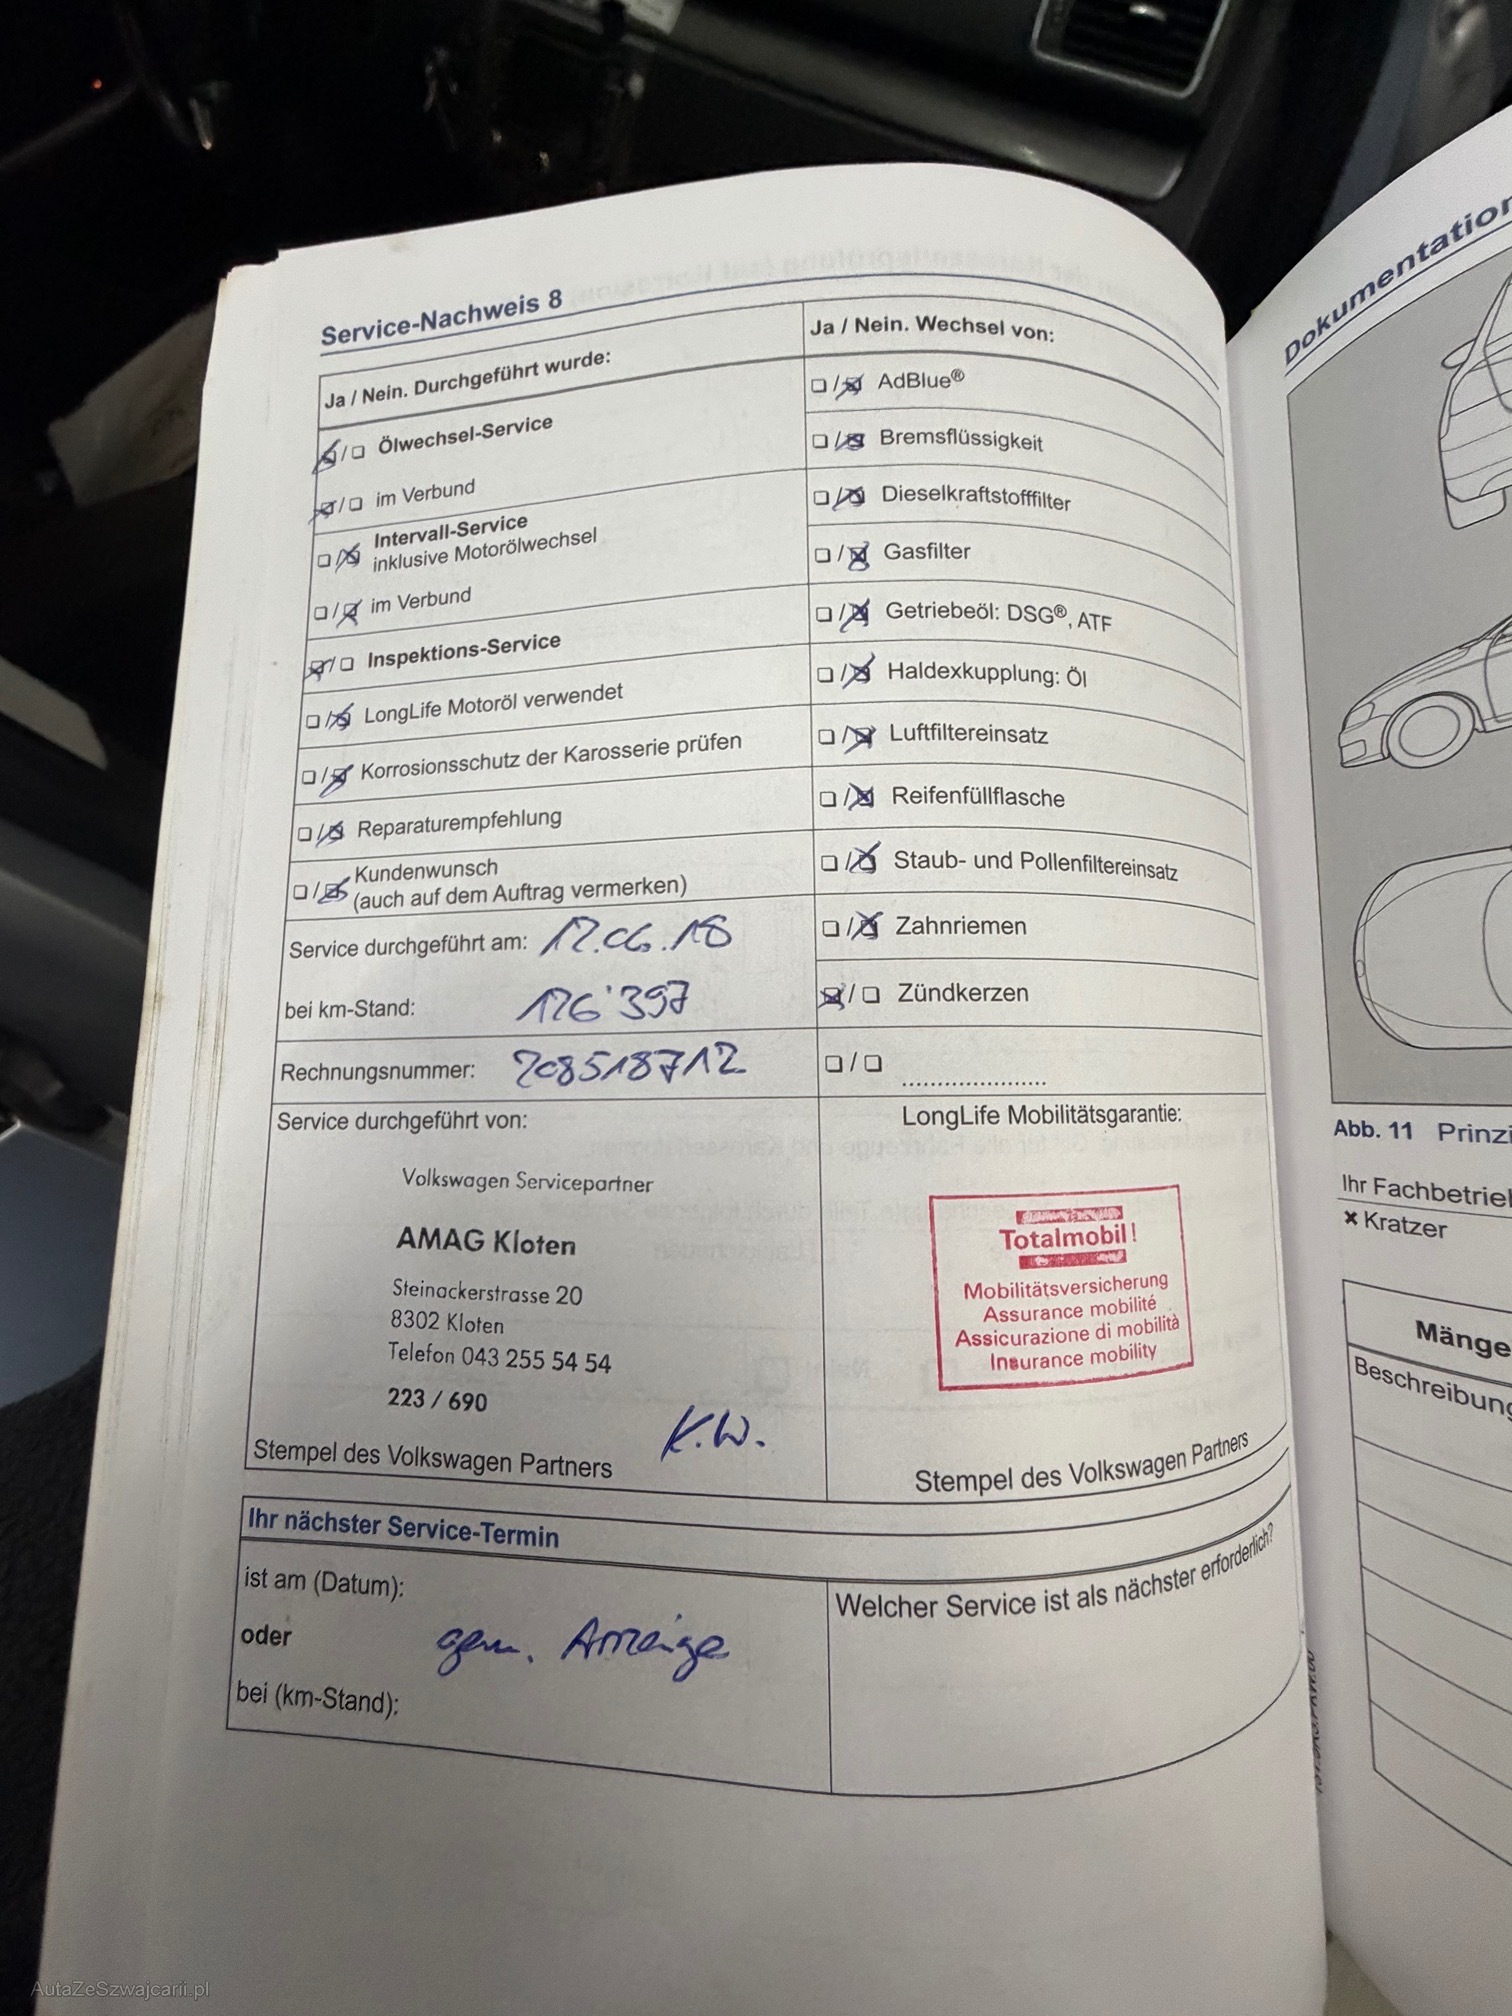 Service-Nachweis 8
Ja / Nein. Durchgeführt wurde:
Ölwechsel-Service
im Verbund
Intervall-Service
inklusive Motorölwechsel
im Verbund
Inspektions-Service
LongLife Motoröl verwendet
Korrosionsschutz der Karosserie prüfen
Reparaturempfehlung
Kundenwunsch
(auch auf dem Auftrag vermerken)
Service durchgeführt am: 12.06.18
bei km-Stand: 126'397
Rechnungsnummer: 208518712
Service durchgeführt von:
Volkswagen Servicepartner
AMAG Kloten
Steinackerstrasse 20
8302 Kloten
Telefon 043 255 54 54
223 / 690
K.W.
Stempel des Volkswagen Partners
Ja / Nein. Wechsel von:
AdBlue®
Bremsflüssigkeit
Dieselkraftstofffilter
Gasfilter
Getriebeöl: DSG®, ATF
Haldexkupplung: Öl
Luftfiltereinsatz
Reifenfüllflasche
Staub- und Pollenfiltereinsatz
Zahnriemen
Zündkerzen
LongLife Mobilitätsgarantie:
Totalmobil!
Mobilitätsversicherung
Assurance mobilité
Assicurazione di mobilità
Insurance mobility
Stempel des Volkswagen Partners
Ihr nächster Service-Termin
ist am (Datum):
oder
gem. Anzeige
bei (km-Stand):
Welcher Service ist als nächster erforderlich?
Dokumentation
Abb. 11 Prinzi
Ihr Fachbetrieb
× Kratzer
Mänge
Beschreibung
AutaZeSzwajcarii.pl